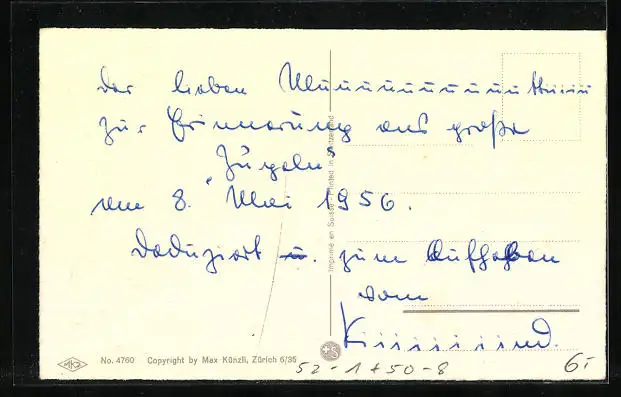 Der lieben Muuuuuuuuu Miiiii
zur Erinnerung ans große
"Zügeln"
vom 8. Mai 1956.
Deduziert u. zum Aufheben
vom
Kiiiiiiiind.
Imprimé en Suisse - Printed in Switzerland
No. 4760 Copyright by Max Künzli, Zürich 6/35
52-1+50-8
6.-